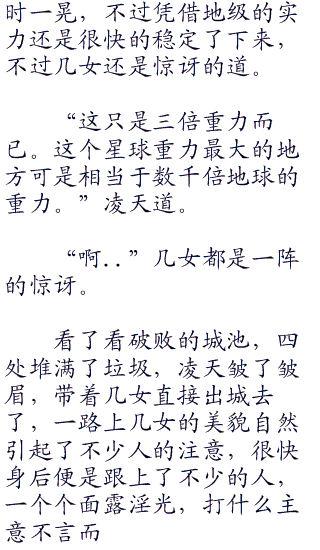 时一晃，不过凭借地级的实
力还是很快的稳定了下来，
不过几女还是惊讶的道。
“这只是三倍重力而
已。这个星球重力最大的地
方可是相当于数千倍地球的
重力。”凌天道。
“啊..”几女都是一阵
的惊讶。
看了看破败的城池，四
处堆满了垃圾，凌天皱了皱
眉，带着几女直接出城去
了，一路上几女的美貌自然
引起了不少人的注意，很快
身后便是跟上了不少的人，
一个个面露淫光，打什么主
意不言而